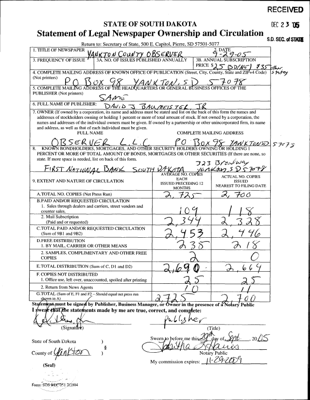 RECEIVED
DEC 23 '05
S.D. SEC. of STATE
STATE OF SOUTH DAKOTA
Statement of Legal Newspaper Ownership and Circulation
Return to: Secretary of State, 500 E. Capitol, Pierre, SD 57501-5077
1. TITLE OF NEWSPAPER YANKTON COUNTY OBSERVER 2. DATE 9-29-05
3. FREQUENCY OF ISSUE 3A. NO. OF ISSUES PUBLISHED ANNUALLY 3B. ANNUAL SUBSCRIPTION
PRICE
4. COMPLETE MAILING ADDRESS OF KNOWN OFFICE OF PUBLICATION (Street, City, County, State and ZIP+4 Code)
(Not printers) P.O BOX 98 YANKTON, SD 57078
5. COMPLETE MAILING ADDRESS OF THE HEADQUARTERS OR GENERAL BUSINESS OFFICES OF THE
PUBLISHER (Not printer) SAME
6. FULL NAME OF PUBLISHER: DAVID J BAUMEISTER JR
7. OWNER (If owned by a corporation, its name and address must be stated and list on the back of this form the names and
addresses of stockholders owning or holding 1 percent or more of total amount of stock. If not owned by a corporation, the
names and addresses of the individual owners must be given. If owned by a partnership or other unincorporated firm, its name
and address, as well as that of each individual must be given.
FULL NAME COMPLETE MAILING ADDRESS
OBSERVER L.L.C. PO BOX 98 YANKTON SD 57078
8. KNOWN BONDHOLDERS, MORTGAGES, AND OTHER SECURITY HOLDERS OWNING OR HOLDING 1
PERCENT OR MORE OF TOTAL AMOUNT OF BONDS, MORTGAGES OR OTHER SECURITIES (If there are none, so
state. If more space is needed, list on back of this form.
323 Broadway
FIRST NATIONAL BANK SOUTH DAKOTA YANKTON SD 57078
9. EXTENT AND NATURE OF CIRCULATION
AVERAGE NO. COPIES
EACH
ISSUED PRECEDING 12
MONTHS
ACTUAL NO. COPIES
ISSUED
NEAREST TO FILING DATE
A. TOTAL NO. COPIES (Net Press Run) 2,725 2,700
B. PAID AND/OR REQUESTED CIRCULATION
1. Sales through dealers and carriers, street vendors and
counter sales. 109 118
2. Mail Subscription
(Paid and or requested) 2,344 2,328
C. TOTAL PAID AND/OR REQUESTED CIRCULATION
(Sum of 9B1 and 9B2) 2,453 2,446
D. FREE DISTRIBUTION
1. BY MAIL, CARRIER OR OTHER MEANS 235 218
2. SAMPLES, COMPLIMENTARY AND OTHER FREE
COPIES 2 0
E. TOTAL DISTRIBUTION (Sum of C, D1 and D2) 2,690 2,664
F. COPIES NOT DISTRIBUTED
1. Office use, left over, unaccounted, spoiled after printing 25 25
2. Return from News Agents 10 11
G. TOTAL (Sum of E, F1 and F2 - Should equal net press run
shown in A) 2,725 2,700
Statement must be signed by Publisher, Business Manager, or Owner in the presence of a Notary Public
I swear that the statements made by me are true, correct, and complete:
Publisher
(Signature) (Title)
State of South Dakota )
County of Yankton )
Sworn to before me this day of Sept 2005
Notary Public
(Seal) My commission expires: